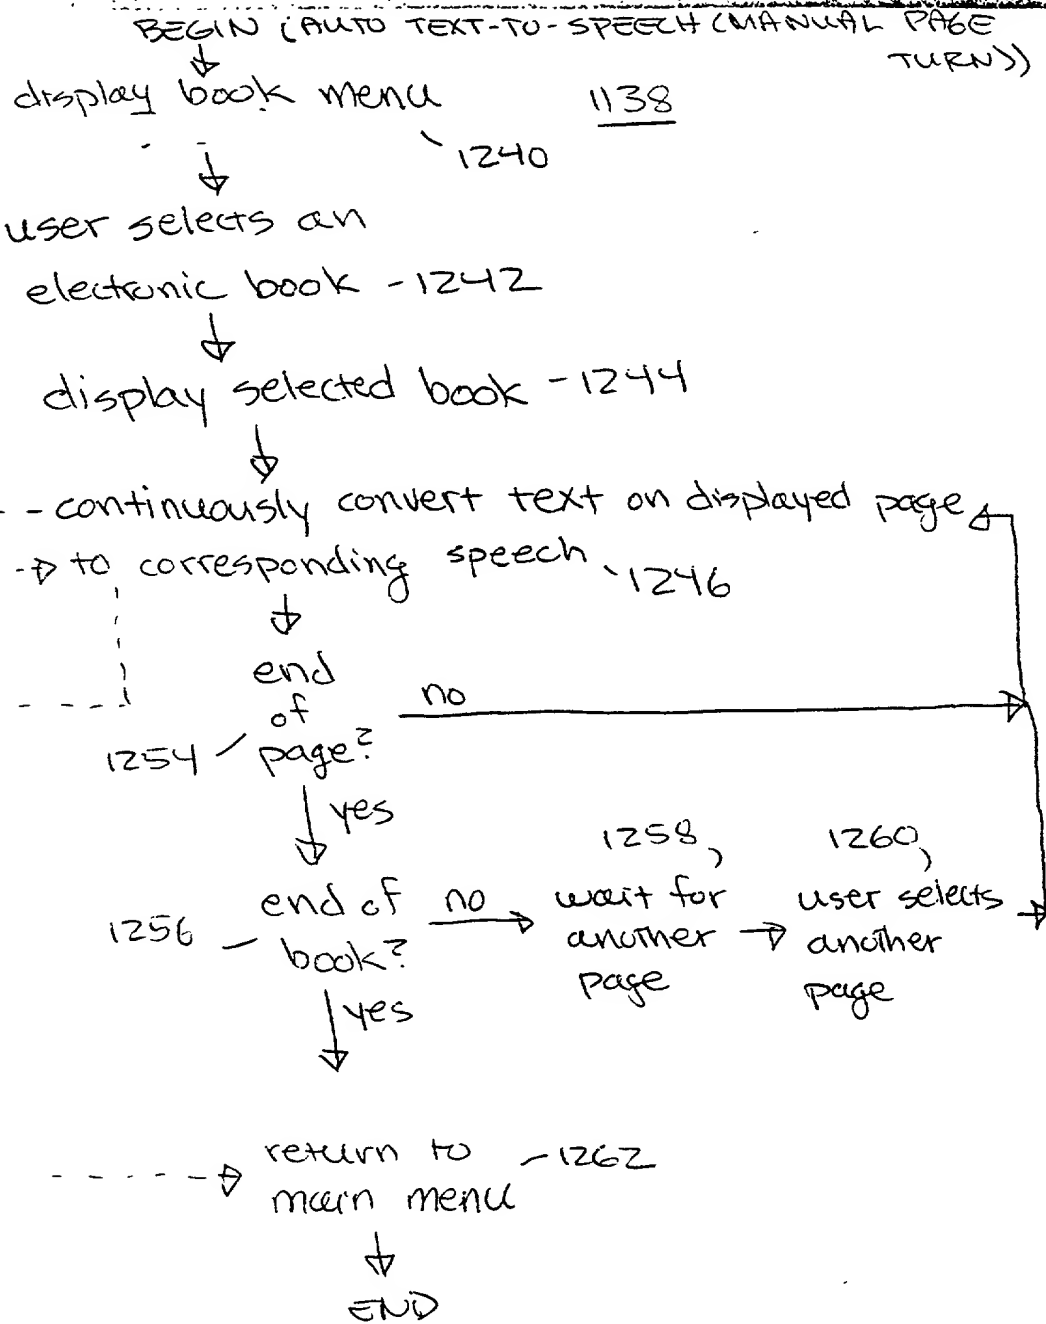 BEGIN (AUTO TEXT-TO-SPEECH (MANUAL PAGE
TURN))
display book menu
1138
1240
user selects an
electronic book - 1242
display selected book - 1244
continuously convert text on displayed page
to corresponding speech
1246
end
of
page?
no
1254
yes
1258
1260
end of
book?
no
wait for
another
page
user selects
another
page
1256
yes
return to
main menu
1262
END